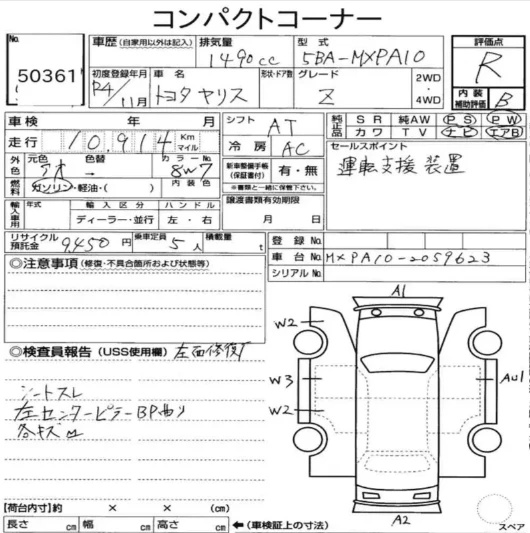 コンパクトコーナー
No.
50361
車歴 (自家用以外は記入) 排気量 1490cc 型式 5BA-MXPA10
評価点 R
初度登録年月 R4/11月 車名 トヨタ ヤリス 形状・ドア数 グレード Z 2WD・4WD
内装補助評価 B
車検 年 月 シフト AT
純正品 SR 純AW PS PW
カワ TV ナビ エアB
走行 10,914 Km マイル 冷房 AC
セールスポイント
運転支援装置
外色 元色 色替 カラーNo. 8W7
燃料 ガソリン・軽油・( ) 内装色
新車整備手帳(保証書付) 有・無
※書類と一緒に保管下さい。
輸入車用 年式 輸入区分 ハンドル
ディーラー・並行 左・右
譲渡書類有効期限
月 日
リサイクル預託金 9,450円 乗車定員 5人 積載量 t
登録No.
車台No. MXPA10-2059623
シリアルNo.
◎注意事項 (修復・不具合箇所および状態等)
◎検査員報告 (USS使用欄) 左面修復有
シートスレ
左センターピラーBP曲り
各キズ凹
A1
W2
W3
W2
AU1
A2
スペア
【荷台内寸】約 × × (cm)
長さ cm 幅 cm 高さ cm ←(車検証上の寸法)